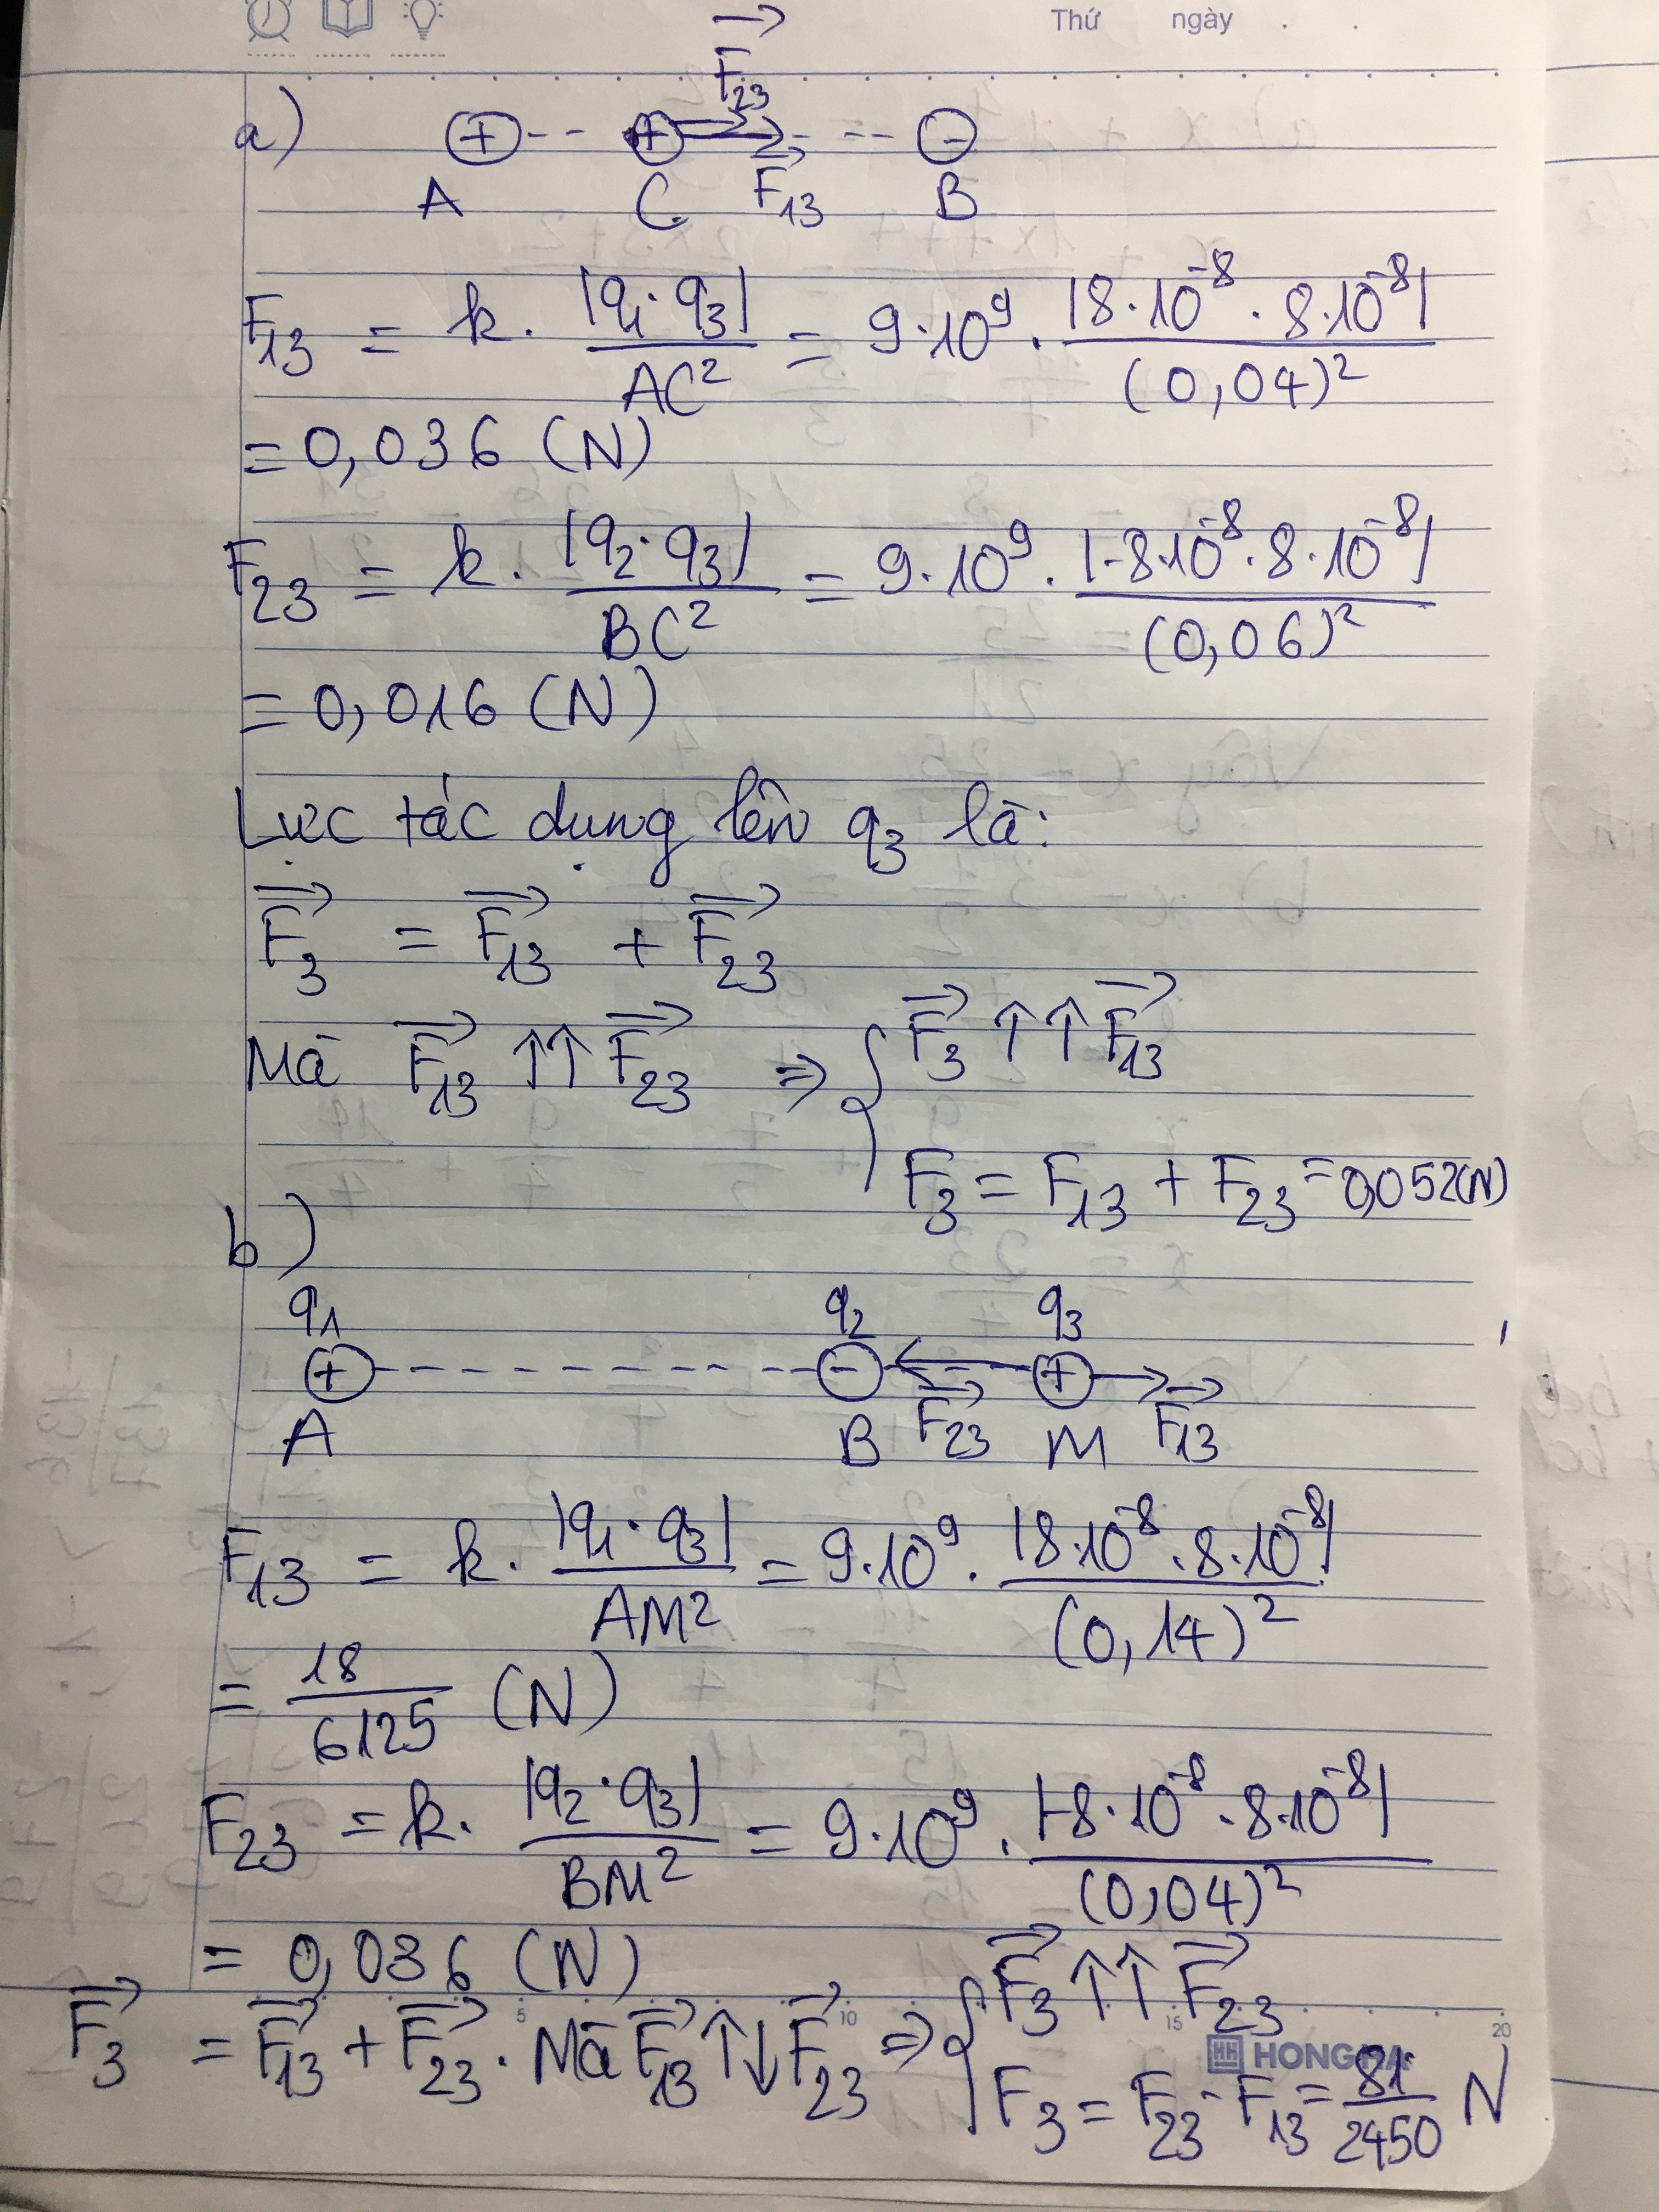 Thứ ngày
a)
F₂₃→
+ C + B -
A C F₁₃→ B
F₁₃ = k · |q₁·q₃| / AC² = 9·10⁹ · |8·10⁻⁸ · 8·10⁻⁸| / (0,04)²
= 0,036 (N)
F₂₃ = k · |q₂·q₃| / BC² = 9·10⁹ · |-8·10⁻⁸ · 8·10⁻⁸| / (0,06)²
= 0,016 (N)
Lực tác dụng lên q₃ là:
F₃→ = F₁₃→ + F₂₃→
Mà F₁₃→ ↑↑ F₂₃→ => { F₃→ ↑↑ F₁₃→
F₃ = F₁₃ + F₂₃ = 0,052(N)
b)
q₁ q₂ q₃
+ - +
A B F₂₃→ M F₁₃→
F₁₃ = k · |q₁·q₃| / AM² = 9·10⁹ · |8·10⁻⁸ · 8·10⁻⁸| / (0,14)²
= 18/6125 (N)
F₂₃ = k · |q₂·q₃| / BM² = 9·10⁹ · |-8·10⁻⁸ · 8·10⁻⁸| / (0,04)²
= 0,036 (N)
F₃→ = F₁₃→ + F₂₃→ . Mà F₁₃→ ↑↓ F₂₃→ => { F₃→ ↑↑ F₂₃→
F₃ = F₂₃ - F₁₃ = 81/2450 N
5 10 15 20